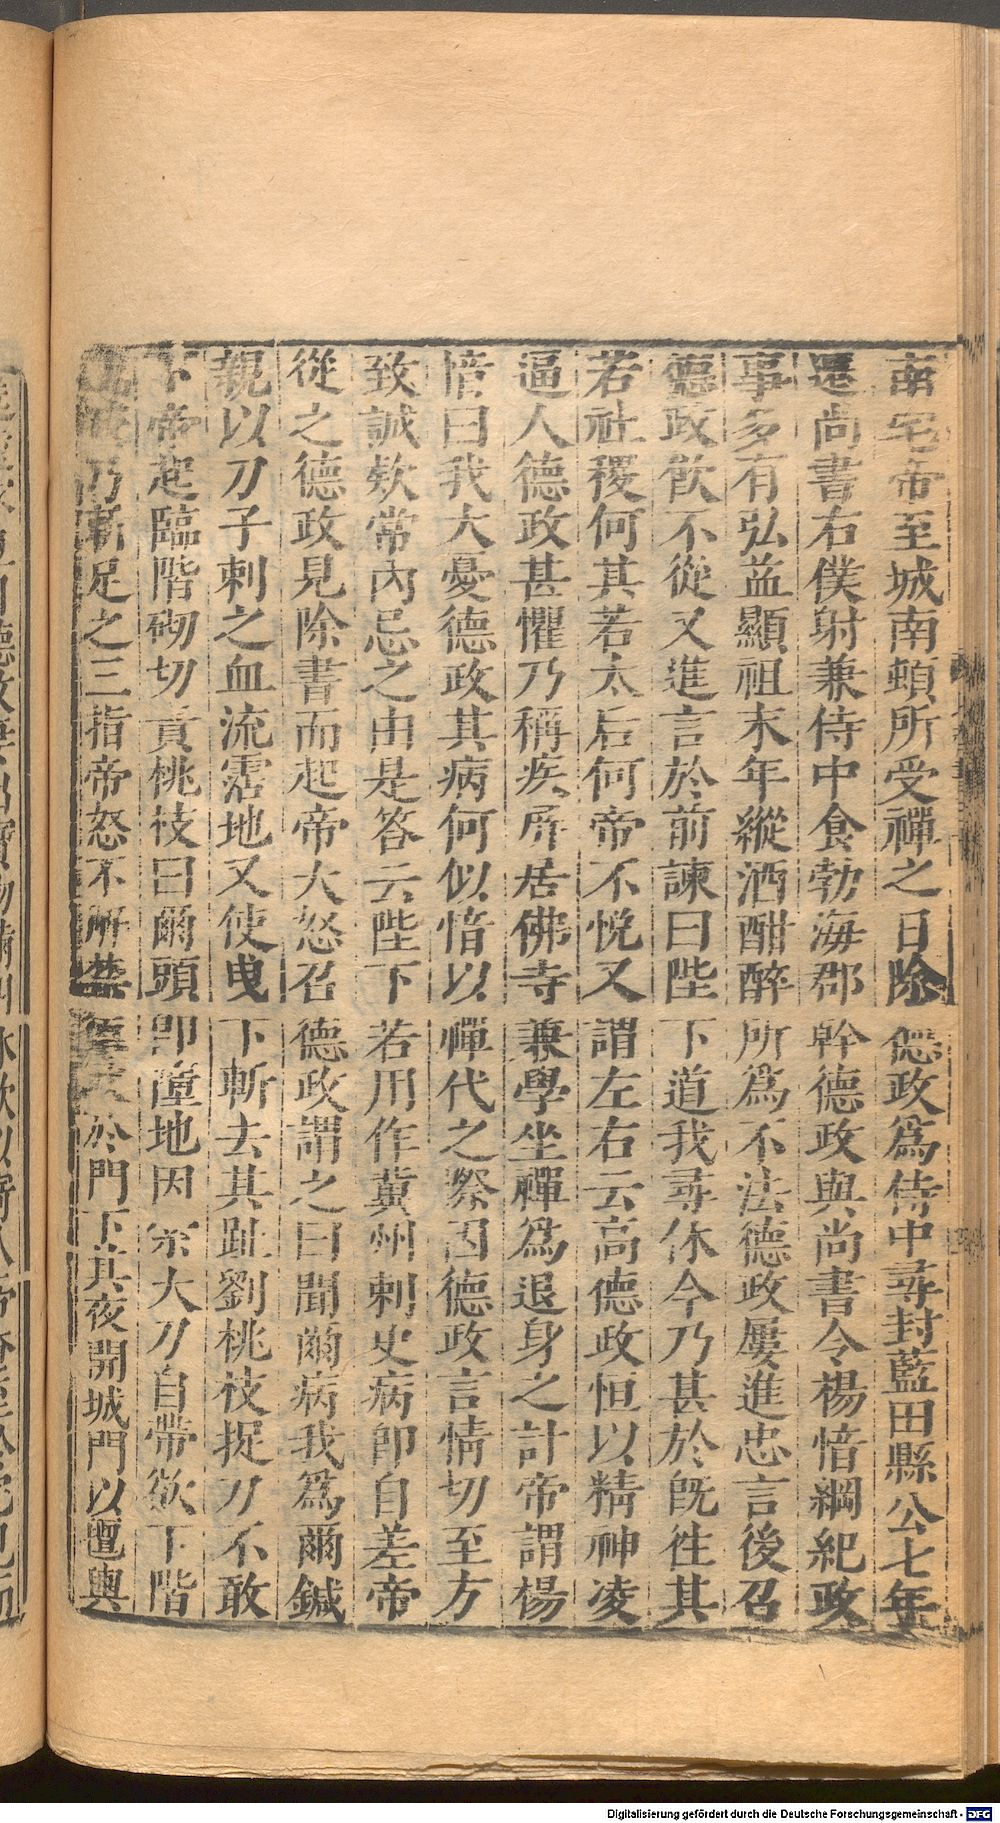 南宅帝至城南頓所受禪之日除德政爲侍中尋封藍田縣公七年
遷尚書右僕射兼侍中食勃海郡幹德政與尚書令楊愔綱紀政
事多有弘益顯祖末年縱酒酣醉所爲不法德政屢進忠言後召
德政飮不從又進言於前諫曰陛下道我尋休今乃甚於旣徃其
若社稷何其若太后何帝不悅又謂左右云高德政恒以精神凌
逼人德政甚懼乃稱疾屏居佛寺兼學坐禪爲退身之計帝謂楊
愔曰我大憂德政其病何似愔以禪代之際因德政言情切至方
致誠欵常內忌之由是答云陛下若用作冀州刺史病卽自差帝
從之德政見除書而起帝大怒召德政謂之曰聞爾病我爲爾鍼
親以刀子刺之血流霑地又使曳下斬去其趾劉桃枝捉刀不敢
下帝起臨階砌切責桃枝曰爾頭卽墮地因索大刀自帶欲下階
乃斬足之三指帝怒不解禁於門下其夜開城門以氊輿
Digitalisierung gefördert durch die Deutsche Forschungsgemeinschaft - DFG